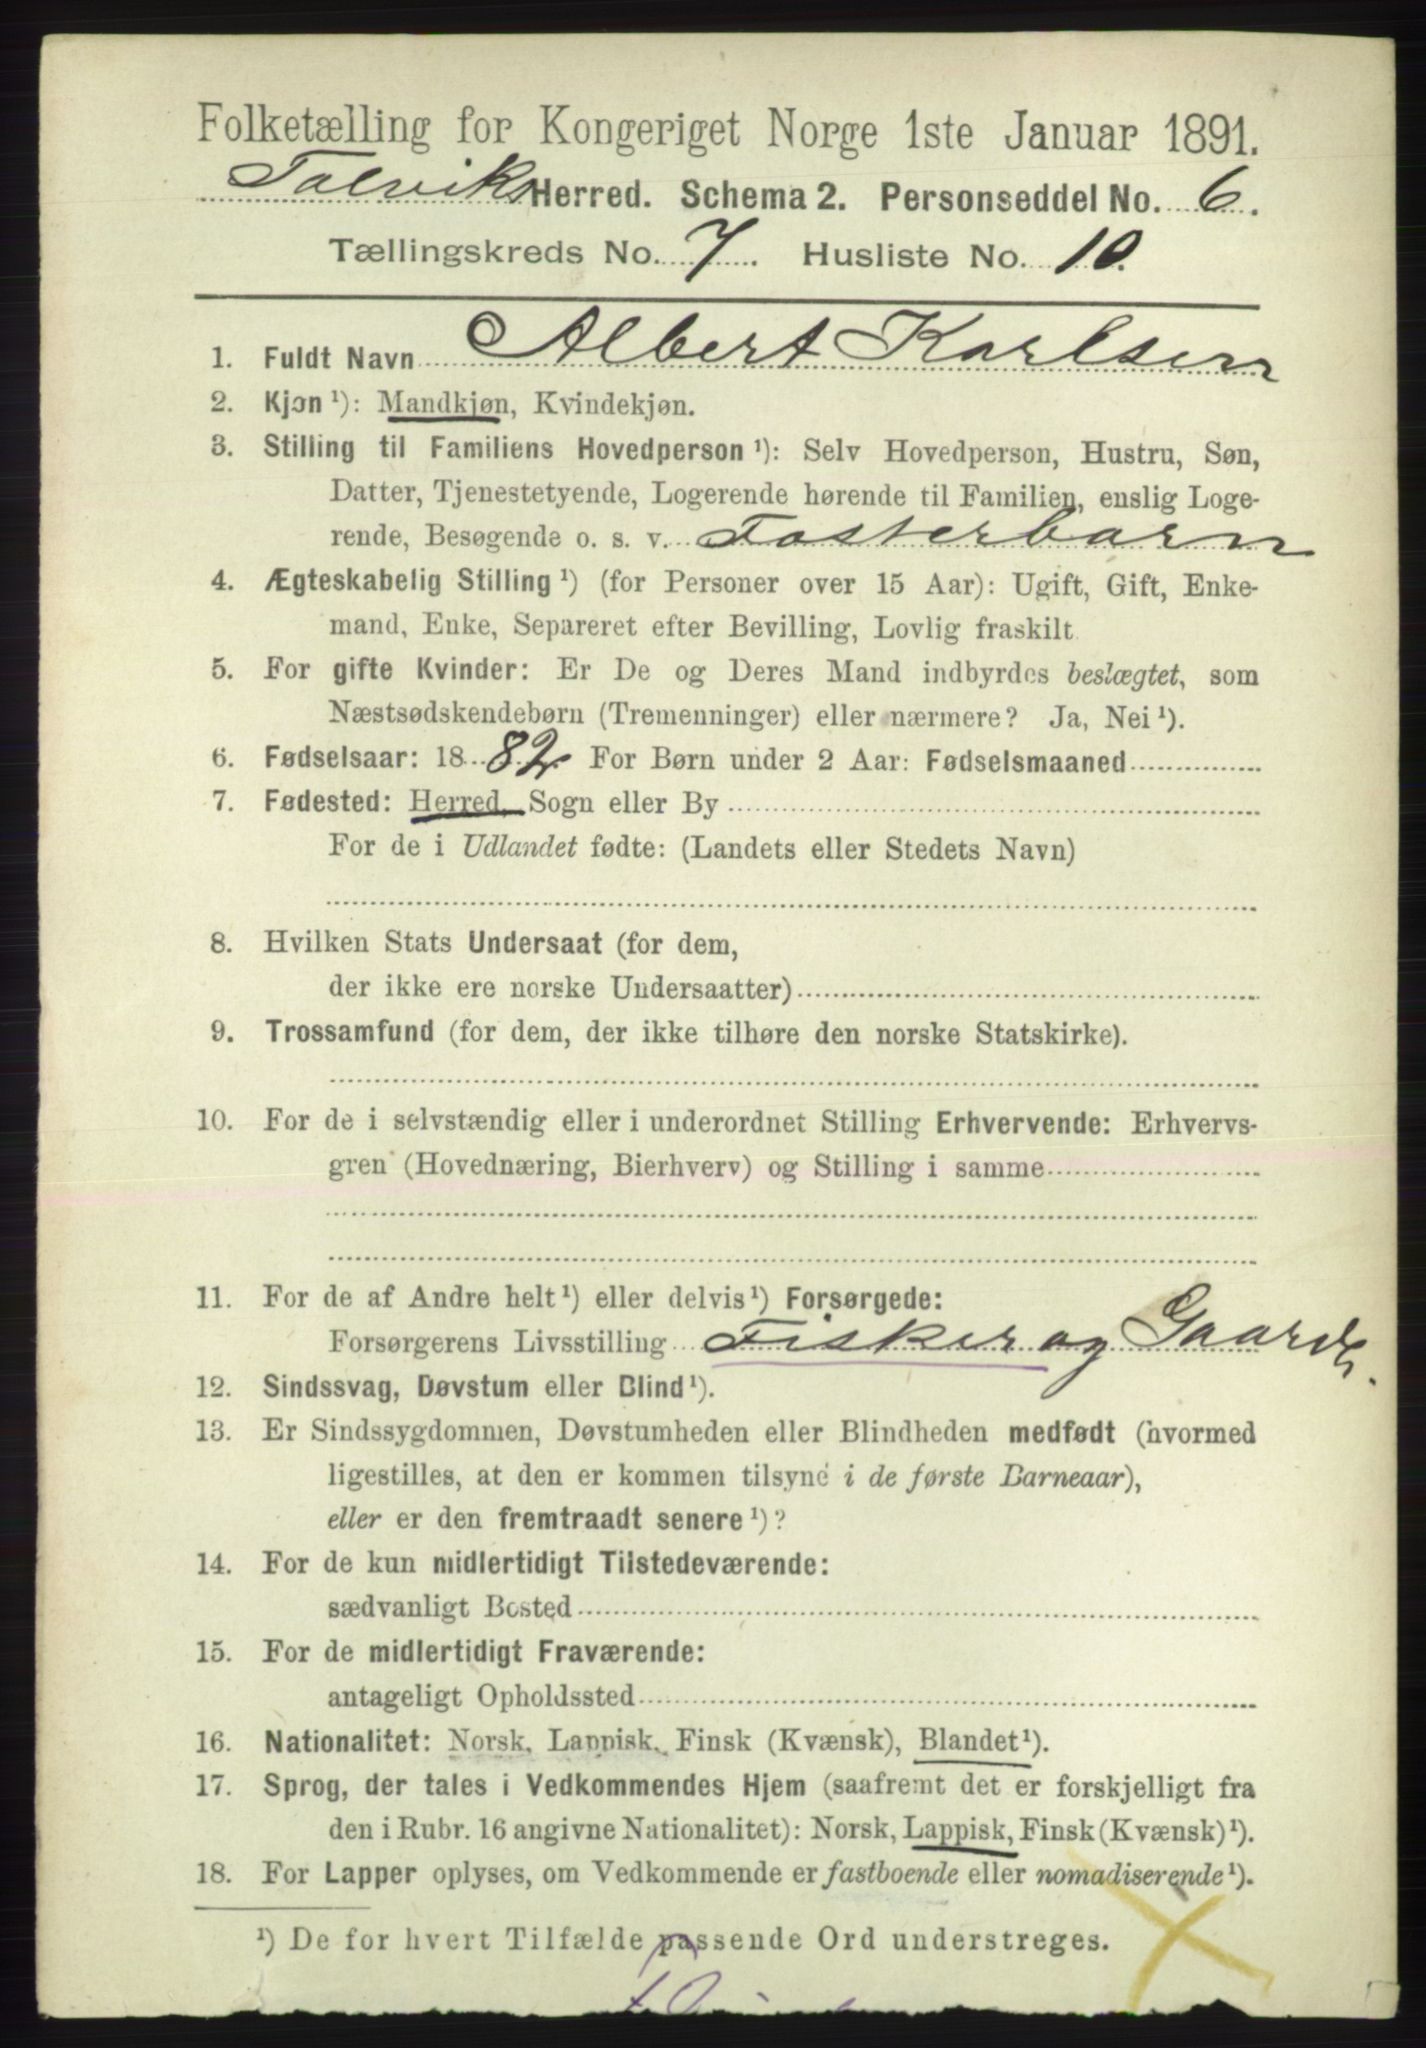 Folketælling for Kongeriget Norge 1ste Januar 1891.
Talviks Herred. Schema 2. Personseddel No. 6.
Tællingskreds No. 7. Husliste No. 10.
1. Fuldt Navn Albert Karlsen
2. Kjøn ¹): Mandkjøn, Kvindekjøn.
3. Stilling til Familiens Hovedperson ¹): Selv Hovedperson, Hustru, Søn,
Datter, Tjenestetyende, Logerende hørende til Familien, enslig Loge-
rende, Besøgende o. s. v. Fosterbarn
4. Ægteskabelig Stilling ¹) (for Personer over 15 Aar): Ugift, Gift, Enke-
mand, Enke, Separeret efter Bevilling, Lovlig fraskilt
5. For gifte Kvinder: Er De og Deres Mand indbyrdes beslægtet, som
Næstsødskendebørn (Tremenninger) eller nærmere? Ja, Nei ¹).
6. Fødselsaar: 1882 For Børn under 2 Aar: Fødselsmaaned
7. Fødested: Herred, Sogn eller By
For de i Udlandet fødte: (Landets eller Stedets Navn)
8. Hvilken Stats Undersaat (for dem,
der ikke ere norske Undersaatter)
9. Trossamfund (for dem, der ikke tilhøre den norske Statskirke).
10. For de i selvstændig eller i underordnet Stilling Erhvervende: Erhvervs-
gren (Hovednæring, Bierhverv) og Stilling i samme
11. For de af Andre helt ¹) eller delvis ¹) Forsørgede:
Forsørgerens Livsstilling Fisker og Gaardb.
12. Sindssvag, Døvstum eller Blind ¹).
13. Er Sindssygdommen, Døvstumheden eller Blindheden medfødt (hvormed
ligestilles, at den er kommen tilsyne i de første Barneaar),
eller er den fremtraadt senere ¹)?
14. For de kun midlertidigt Tilstedeværende:
sædvanligt Bosted
15. For de midlertidigt Fraværende:
antageligt Opholdssted
16. Nationalitet: Norsk, Lappisk, Finsk (Kvænsk), Blandet ¹).
17. Sprog, der tales i Vedkommendes Hjem (saafremt det er forskjelligt fra
den i Rubr. 16 angivne Nationalitet): Norsk, Lappisk, Finsk (Kvænsk) ¹).
18. For Lapper oplyses, om Vedkommende er fastboende eller nomadiserende ¹).
¹) De for hvert Tilfælde passende Ord understreges.